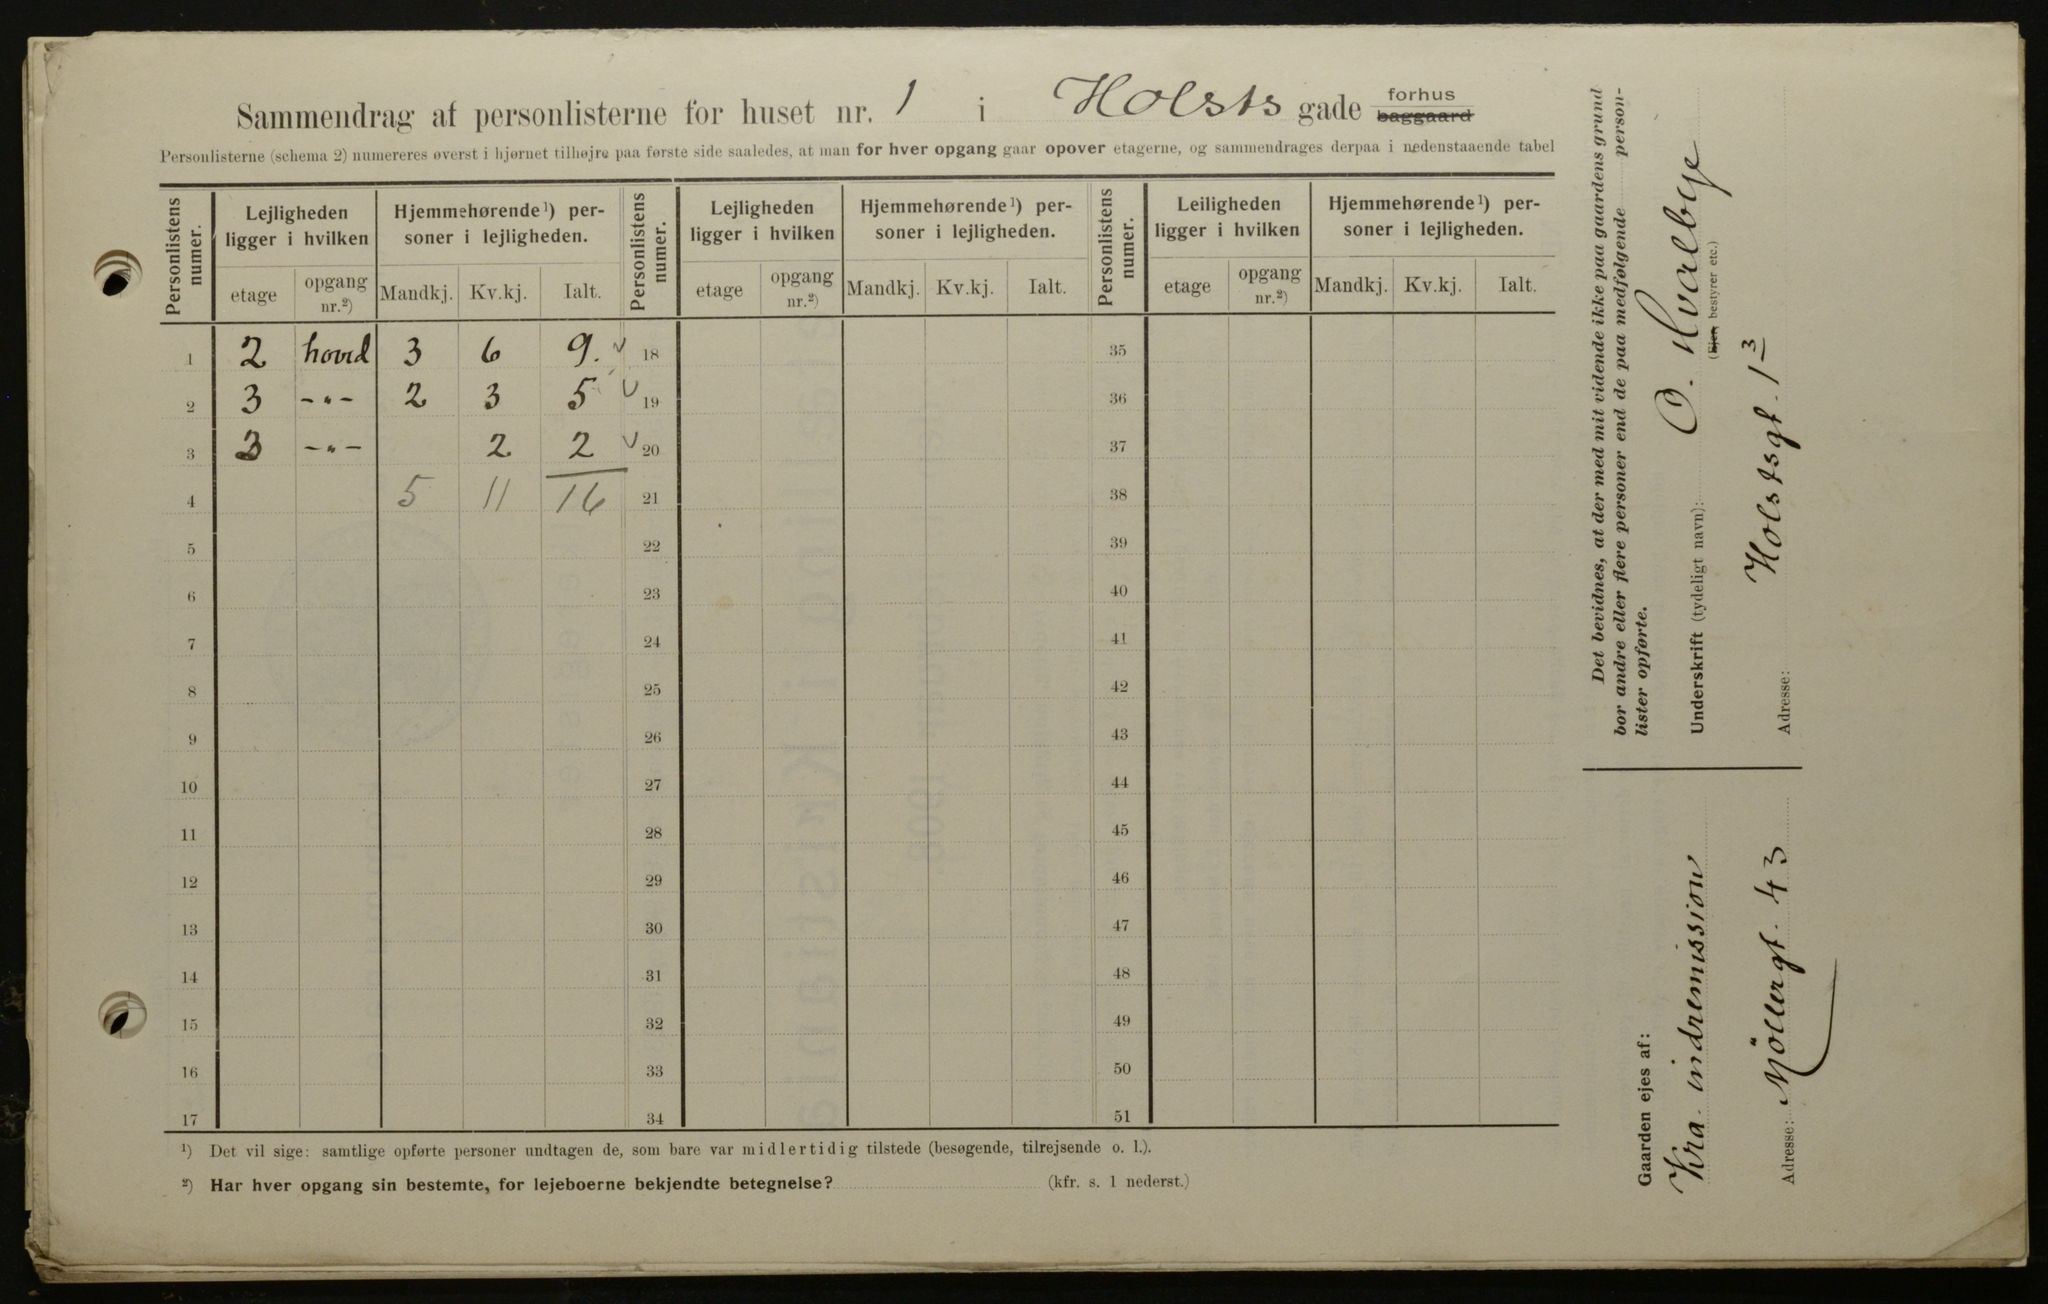 Sammendrag af personlisterne for huset nr. 1 i Holsts gade forhus baggaard
Personlisterne (schema 2) numereres øverst i hjørnet tilhøjre paa første side saaledes, at man for hver opgang gaar opover etagerne, og sammendrages derpaa i nedenstaaende tabel
Personlistens numer. Lejligheden ligger i hvilken Hjemmehørende¹) personer i lejligheden. Personlistens numer. Lejligheden ligger i hvilken Hjemmehørende¹) personer i lejligheden. Personlistens numer. Leiligheden ligger i hvilken Hjemmehørende¹) personer i lejligheden.
etage opgang nr.²) Mandkj. Kv.kj. Ialt. etage opgang nr.²) Mandkj. Kv.kj. Ialt. etage opgang nr.²) Mandkj. Kv.kj. Ialt.
1 2 hoved 3 6 9. v 18 35
2 3 -"- 2 3 5 v 19 36
3 3 -"- 2 2 v 20 37
4 5 11 16 21 38
5 22 39
6 23 40
7 24 41
8 25 42
9 26 43
10 27 44
11 28 45
12 29 46
13 30 47
14 31 48
15 32 49
16 33 50
17 34 51
¹) Det vil sige: samtlige opførte personer undtagen de, som bare var midlertidig tilstede (besøgende, tilrejsende o. l.).
²) Har hver opgang sin bestemte, for lejeboerne bekjendte betegnelse? (kfr. s. 1 nederst.)
Det bevidnes, at der med mit vidende ikke paa gaardens grund
bor andre eller flere personer end de paa medfølgende personlister opførte.
Underskrift (tydeligt navn): O. Hvalbye
(Ejer, bestyrer etc.)
Adresse: Holstsgt. 1 3
Gaarden ejes af:
Kra. indremission
Adresse: Möllergt. 43